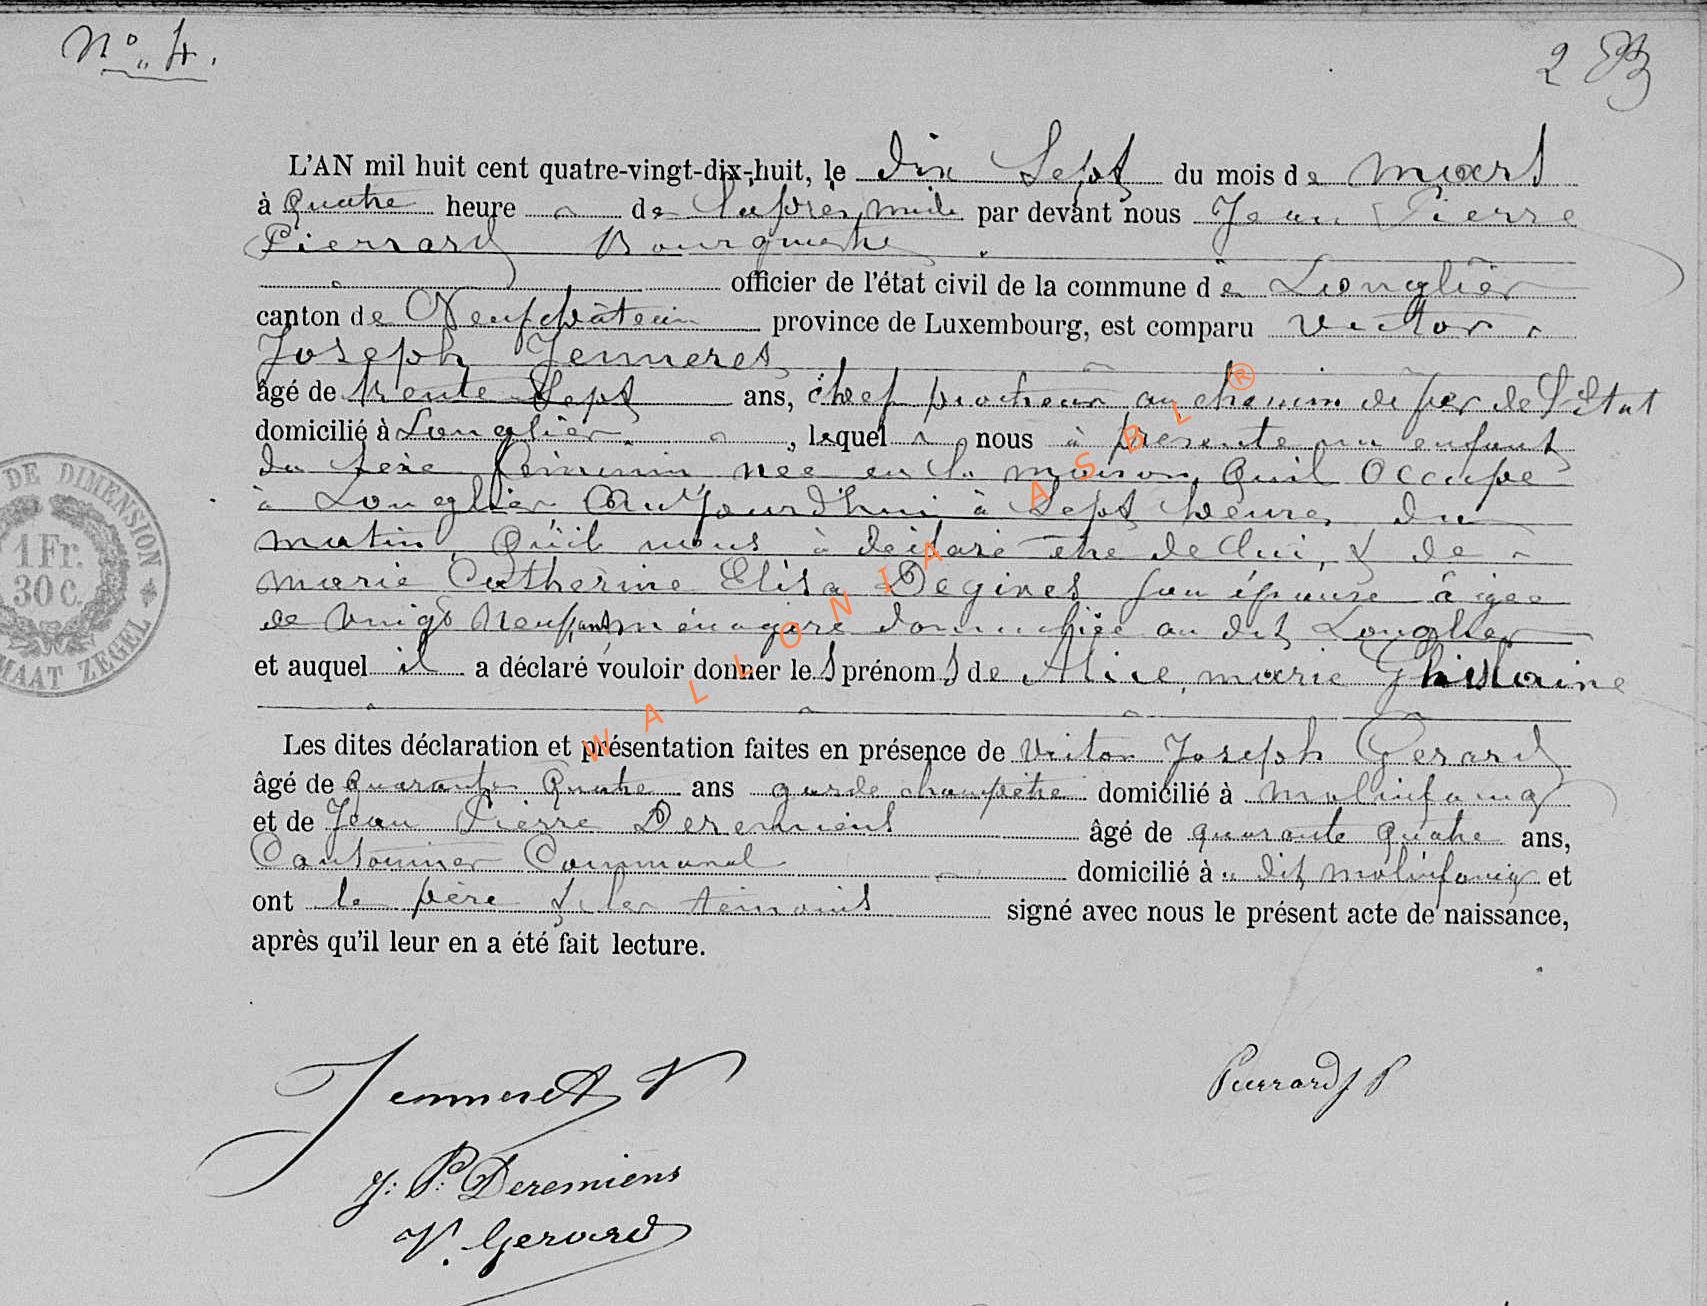 N° 4.
2
L'AN mil huit cent quatre-vingt-dix-huit, le dix Sept du mois de mars
à Quatre heure de l'après midi par devant nous Jean Pierre
Pierrard Bourgmestre
officier de l'état civil de la commune de Longlier
canton de Neufchâteau province de Luxembourg, est comparu Victor
Joseph Jemneret
âgé de trente Sept ans, chef piocheur au chemin de fer de l'Etat
domicilié à Longlier, lequel nous à présenté un enfant
du sexe feminin née en la maison quil occupe
à Longlier Aujourd'hui à Sept heures du
matin, Qu'il nous à déclaré être de lui, & de
marie Catherine Elisa Degives son épouse âgée
de Vingt Neuf ans ménagère domiciliée au dit Longlier
et auquel il a déclaré vouloir donner les prénoms de Alice, marie Ghislaine
Les dites déclaration et présentation faites en présence de Victor Joseph Gerard
âgé de Quarante Quatre ans garde champêtre domicilié à Molinfaing
et de Jean Pierre Deremiens âgé de quarante Quatre ans,
Cantonnier Communal domicilié à dit Molinfaing et
ont le père & les témoins signé avec nous le présent acte de naissance,
après qu'il leur en a été fait lecture.
DE DIMENSION
1 Fr.
30 c.
MAAT ZEGEL
WALLONIA ASBL ®
Jemneret V
Pierrard J P
J: P: Deremiens
V. Gerard